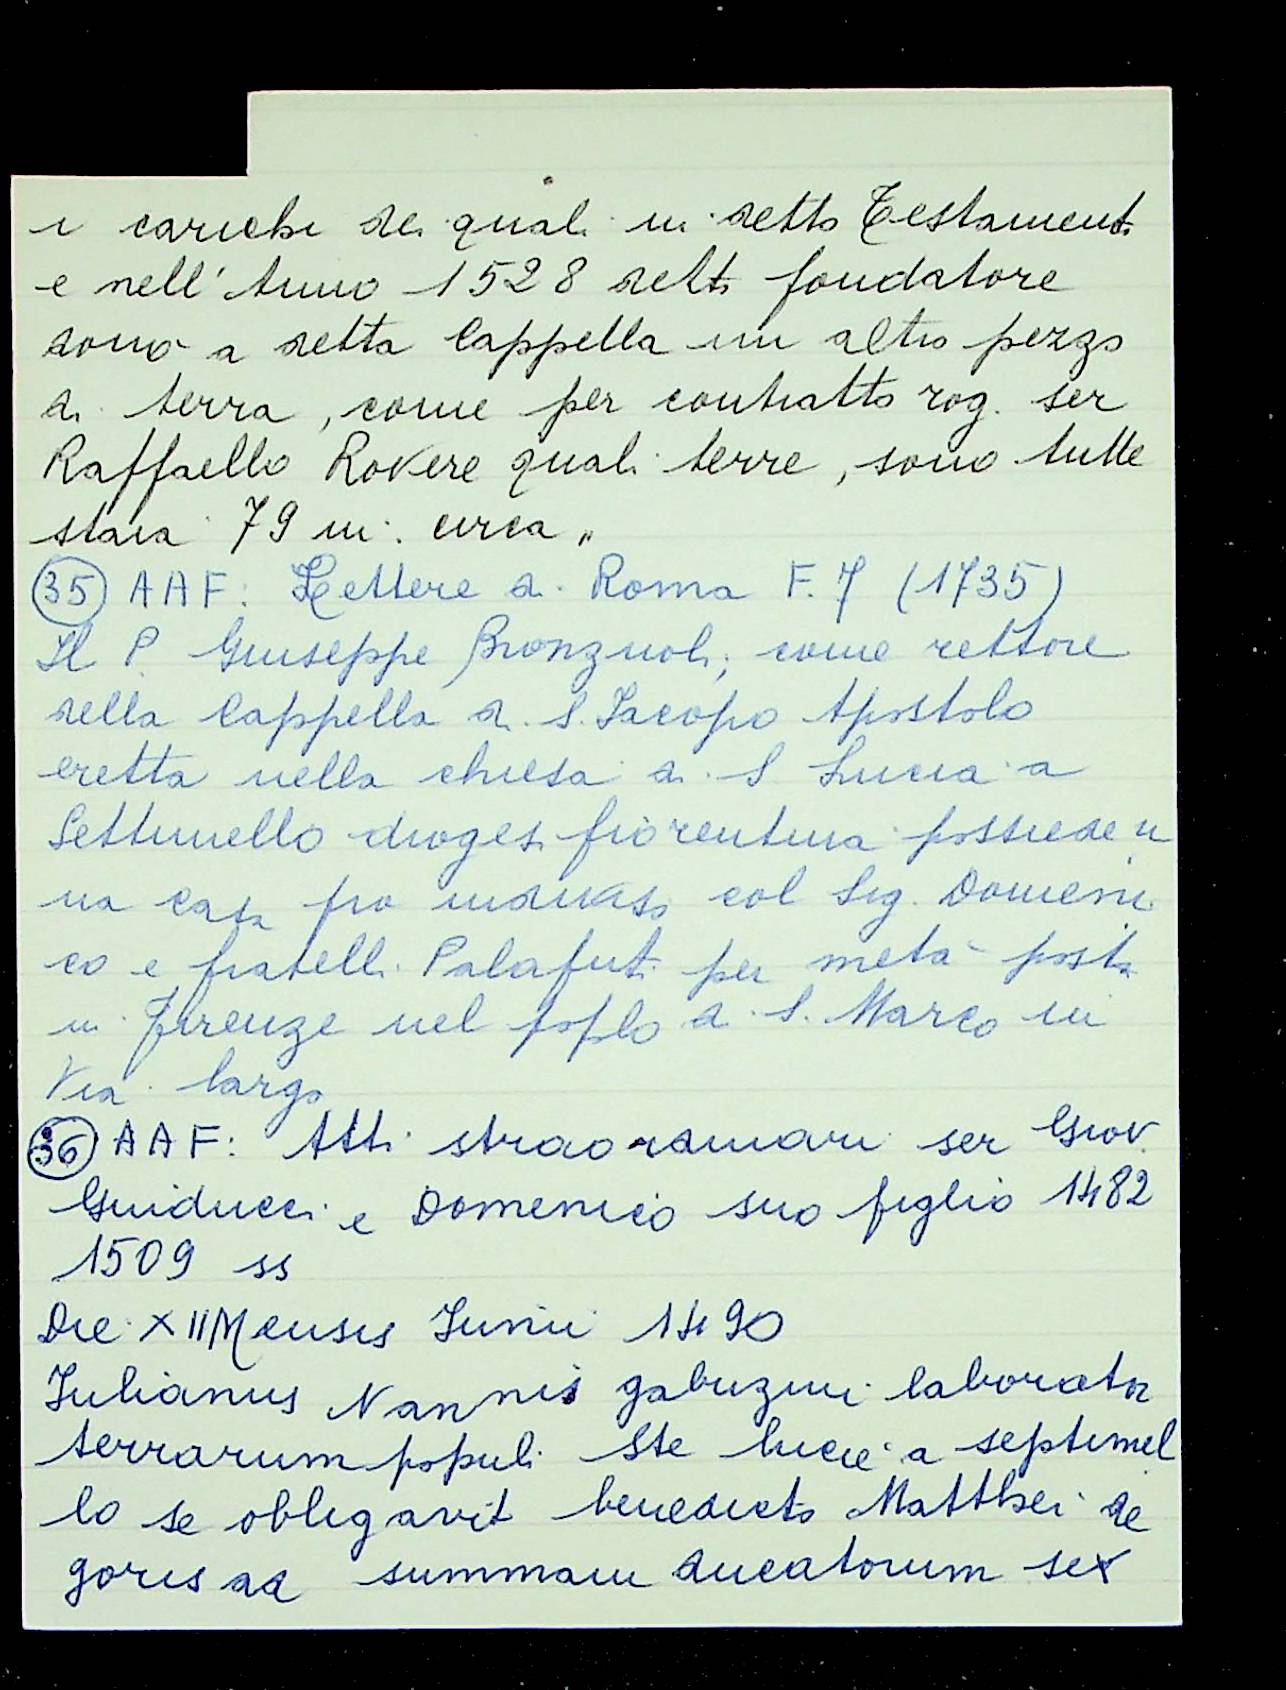 i carichi de quali in detto Testamento
e nell'Anno 1528 detto fondatore
donò a detta Cappella un altro pezzo
di terra, come per contratto rog. ser
Raffaello Rovere quali terre, sono tutte
staia 79 in circa"
(35) AAF: Lettere di Roma F. 7 (1735)
Il P. Giuseppe Bronzuoli, come rettore
della Cappella di S. Jacopo Apostolo
eretta nella chiesa di S Lucia a
Settimello diogesi fiorentina possiede u
na casa pro indiviso col Sig. Domeni
co e fratelli Palafuti per metà posta
in Firenze nel poplo di S. Marco in
Via larga
(36) AAF: Atti straordinari ser Giov.
Guiducci e Domenico suo figlio 1482
1509 ss
Die XII Mensis Junii 1490
Julianus Nannis gabuzini laborator
terrarum populi Ste lucie a septimel
lo se obligavit benedicto Matthei de
goris ad summam ducatorum sex